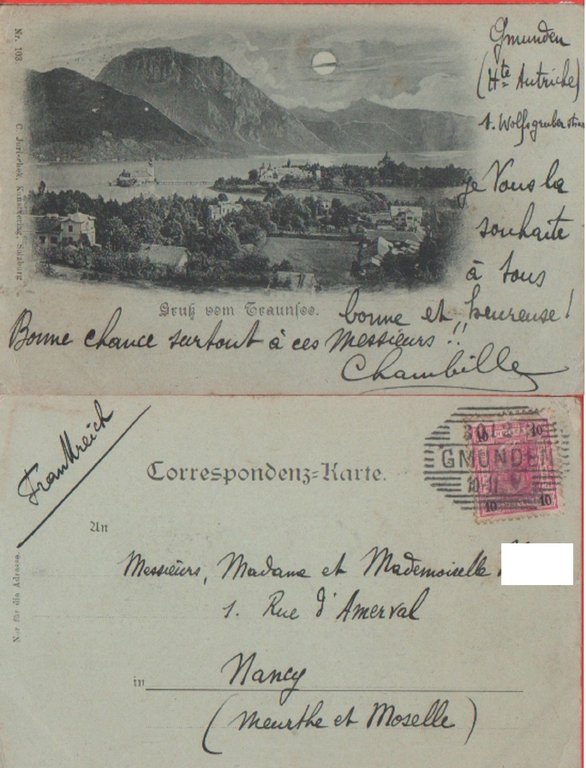 Nr. 103
C. Jurischek, Kunstverlag, Salzburg
Gmunden
(Hte Autriche)
1. Wolfsgruber
Je Vous la
souhaite
à tous
bonne et heureuse!
Gruß vom Traunsee.
Bonne chance surtout à ces Messieurs!!
Chambille
Frankreich
Correspondenz-Karte.
GMUNDEN
10
10
10
10
An
Nur für die Adresse.
Messieurs, Madame et Mademoiselle
1. Rue d'Amerval
in
Nancy
(Meurthe et Moselle)